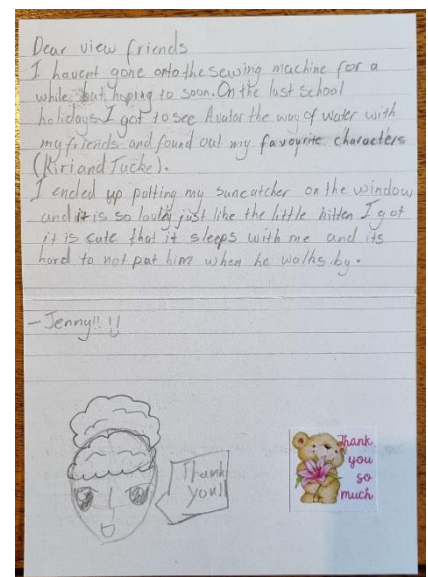 Dear view friends
I havent gone onto the sewing machine for a
while but hoping to soon. On the last school
holidays I got to see Avator the way of water with
my friends and found out my favourite characters
(Kiri and Tucke).
I ended up putting my suncatcher on the window
and it is so lovley just like the little kitten I got
it is cute that it sleeps with me and its
hard to not pat him when he walks by.
-Jenny!!!!
Thank
you!!
Thank
you
so
much